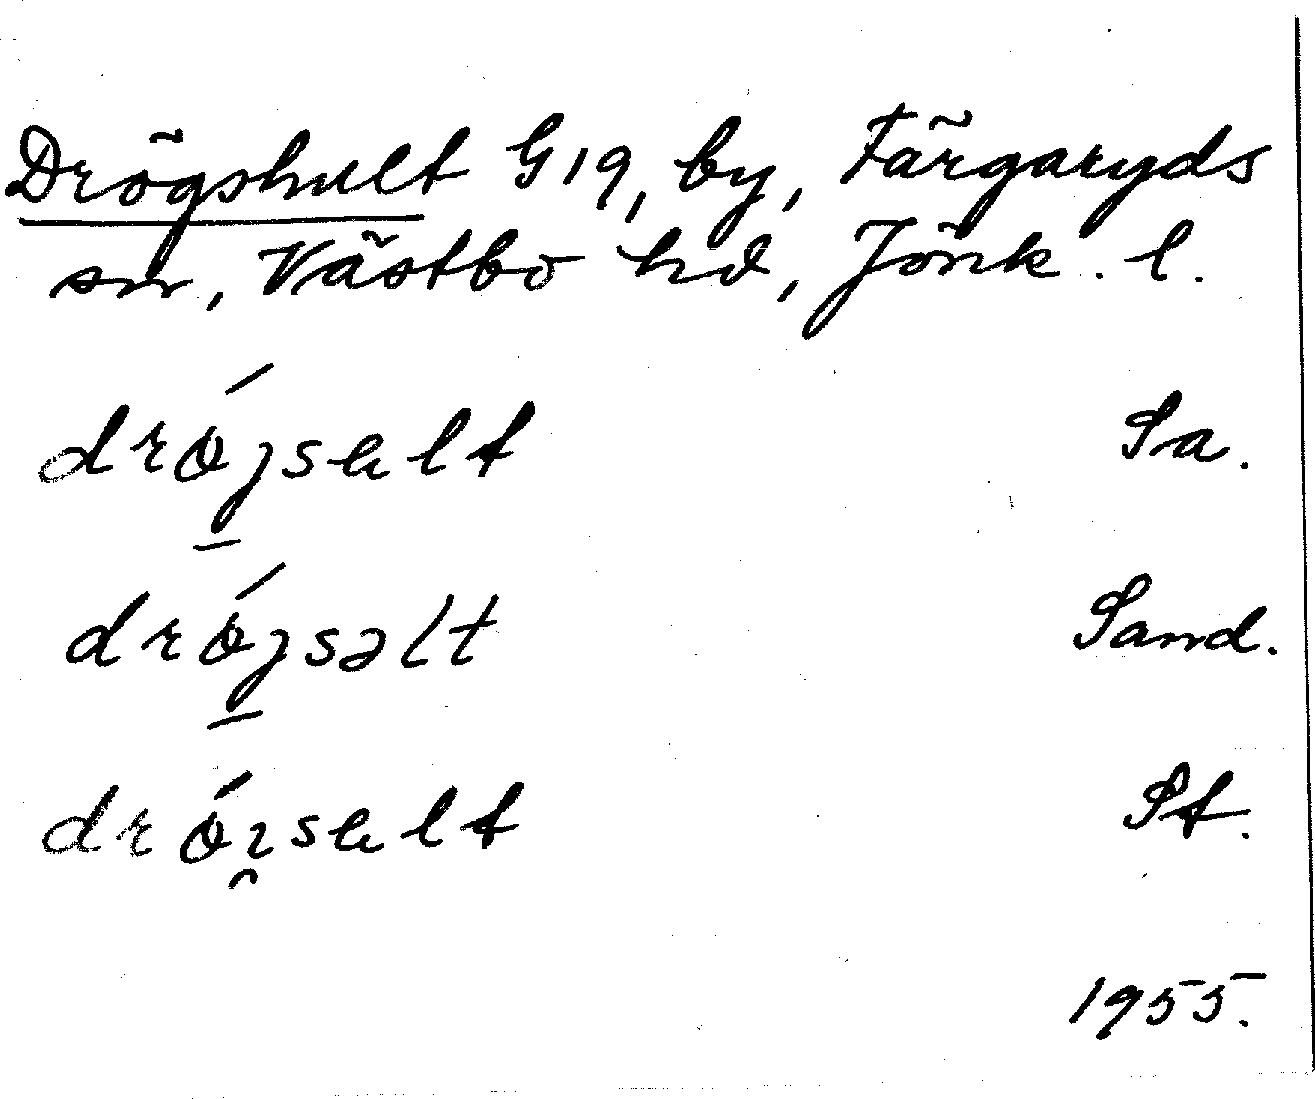 Drögshult G19, by, Färgaryds
sn, Västbo hd, Jönk. l.
drǿjsɐlt Sa.
drǿjsəlt Sand.
drǿi̯sɐlt St.
1955.